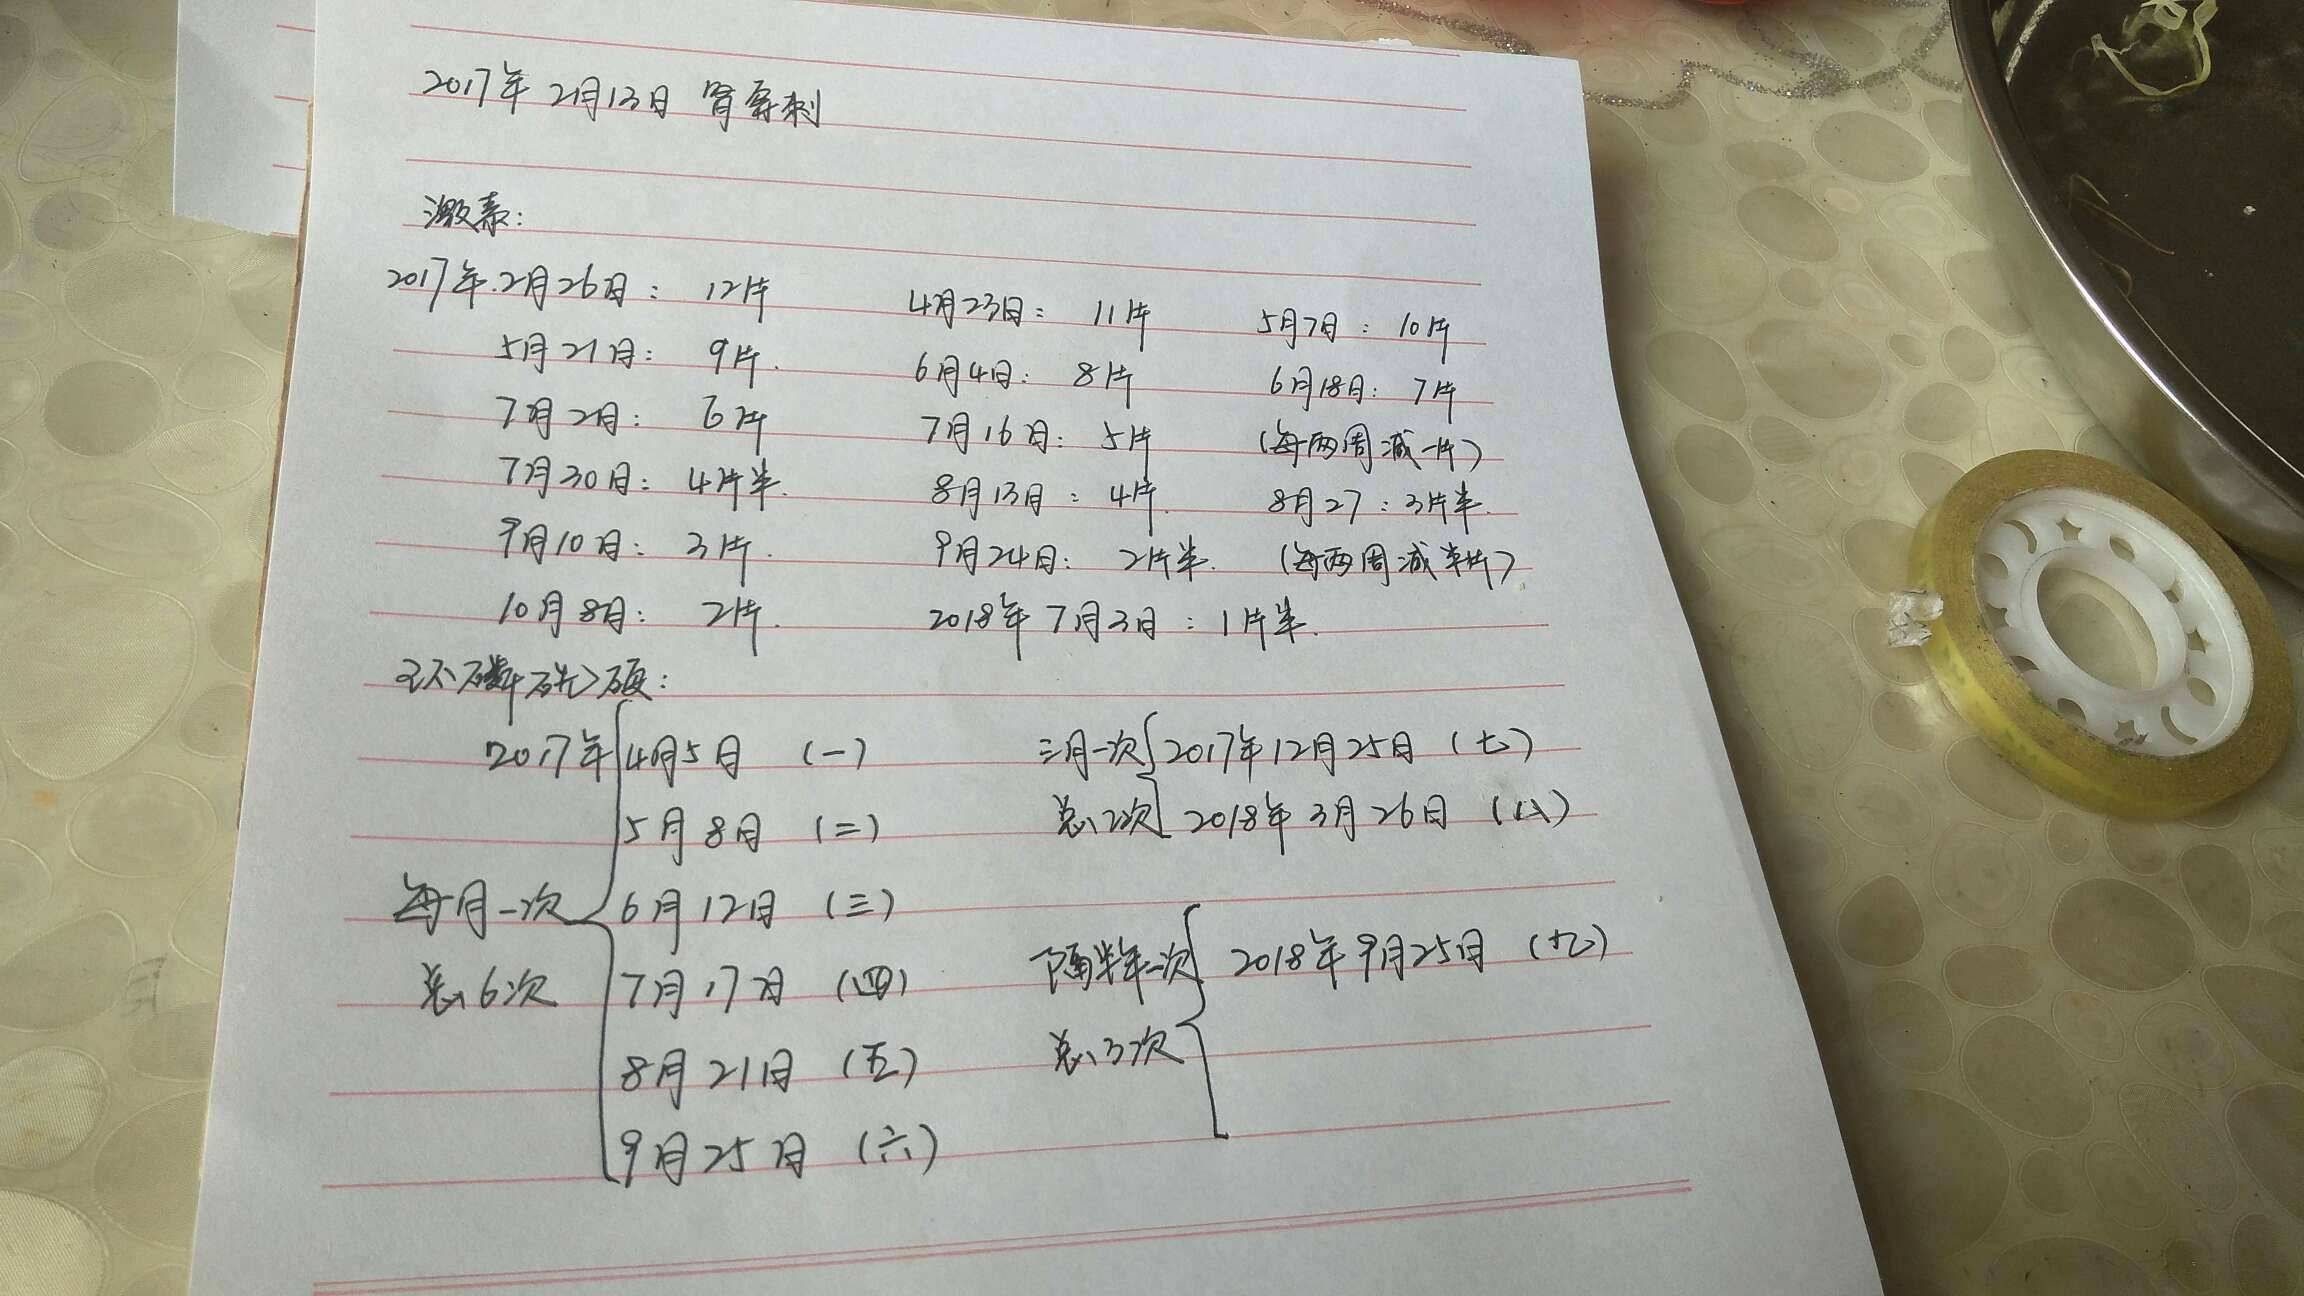 2017年 2月13日 肾穿刺
激素:
2017年.2月26日: 12片 4月23日: 11片 5月7日: 10片
5月21日: 9片. 6月4日: 8片 6月18日: 7片
7月2日: 6片 7月16日: 5片 (每两周减一片)
7月30日: 4片半. 8月13日: 4片. 8月27: 3片半.
9月10日: 3片. 9月24日: 2片半. (每两周减半片)
10月8日: 2片. 2018年7月3日: 1片半.
环磷酰胺:
2017年 4月5日 (一) 三月一次 2017年12月25日 (七)
5月8日 (二) 总2次 2018年3月26日 (八)
每月一次 6月12日 (三)
隔半年一次 2018年9月25日 (九)
总6次 7月17日 (四)
总3次
8月21日 (五)
9月25日 (六)